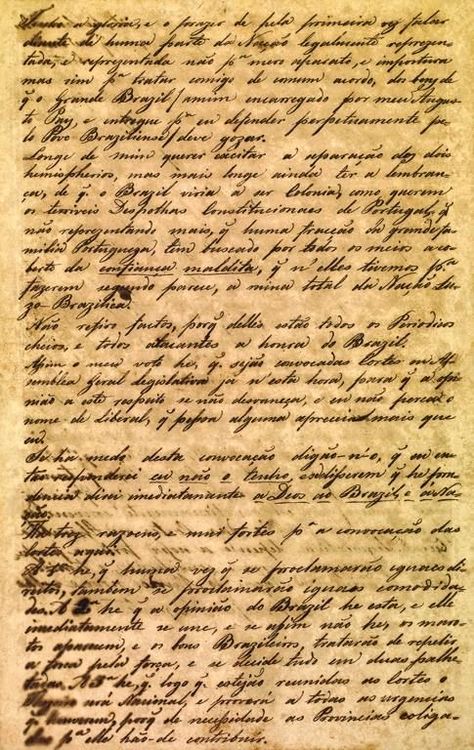 Tenho a gloria, e o prazer de pela primeira vez fallar
diante de huma parte da Nação legalmente reprezen-
tada, e reprezentada não pª mero aparato, e impostura
mas sim pª tratar comigo de comum acordo, dos bens de
q̃ o Grande Brazil / a mim encarregado por meu Augus-
to Pay, e entregue pª eu defender perpetuamente pe-
lo Povo Braziliense / deve gozar.
Longe de mim querer excitar a separação dos dois
hemispherios, mas mais longe ainda ter a lembran-
ça, de q̃ o Brazil viria à ser Colonia, como querem
os terriveis Despothas Constitucionaes de Portugal, q̃
não reprezentando mais, q̃ huma fracção da grande fa-
milia Portugueza, tem buscado por todos os meios aco-
berto da confiansa maldita, q̃ n'elles tivemos pª
fazerem segundo parece, a ruina total da Nação Lu-
zo-Brazilica.
Não refiro factos, porq̃ delles estão todos os Periodicos
cheios, e todos atacantes a honra do Brazil.
Assim o meu voto he, q̃ sejão convocadas Cortes ou As-
semblea Geral Legislativa já n'esta hora, para q̃ a opi-
nião a este respeito se não desvaneça, e eu não perca o
nome de Liberal, q̃ pessoa alguma aprecia mais que
eu.
Se ha medo desta convocação digão-n-o, q̃ eu en-
tão responderei eu não o tenho, e se disserem q̃ he pru-
dencia direi imediatamante a Deos ao Brazil, e à Na-
ção.
Ha tres razoens, e mui fortes pª a convocação das
Cortes agora.
A 1ª he, q̃ huma vez q̃ se proclamarão iguaes di-
reitos, tambem se proclamarão iguaes comodida-
des. A 2ª he q̃ a opinião do Brazil he esta, e elle
imediatamente se une, e se assim não he, os maro-
tos aparecem, e os bons Brazileiros, tratarão de repelir
a força pela força, e se decide tudo em duas palhe-
tadas. A 3ª he, q̃ logo q̃ estejão reunidas as Cortes o
será Nacional, e proverá a todas as urgencias
q̃ houverem, porq̃ de necessidade as Provincias coliga-
das pª elle hão-de contribuir.